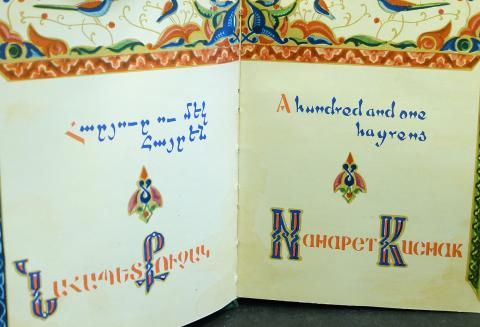 Հարյուր ու մեկ
հայրեն
Նահապետ Քուչակ
A hundred and one
hayrens
Nahapet Kuchak